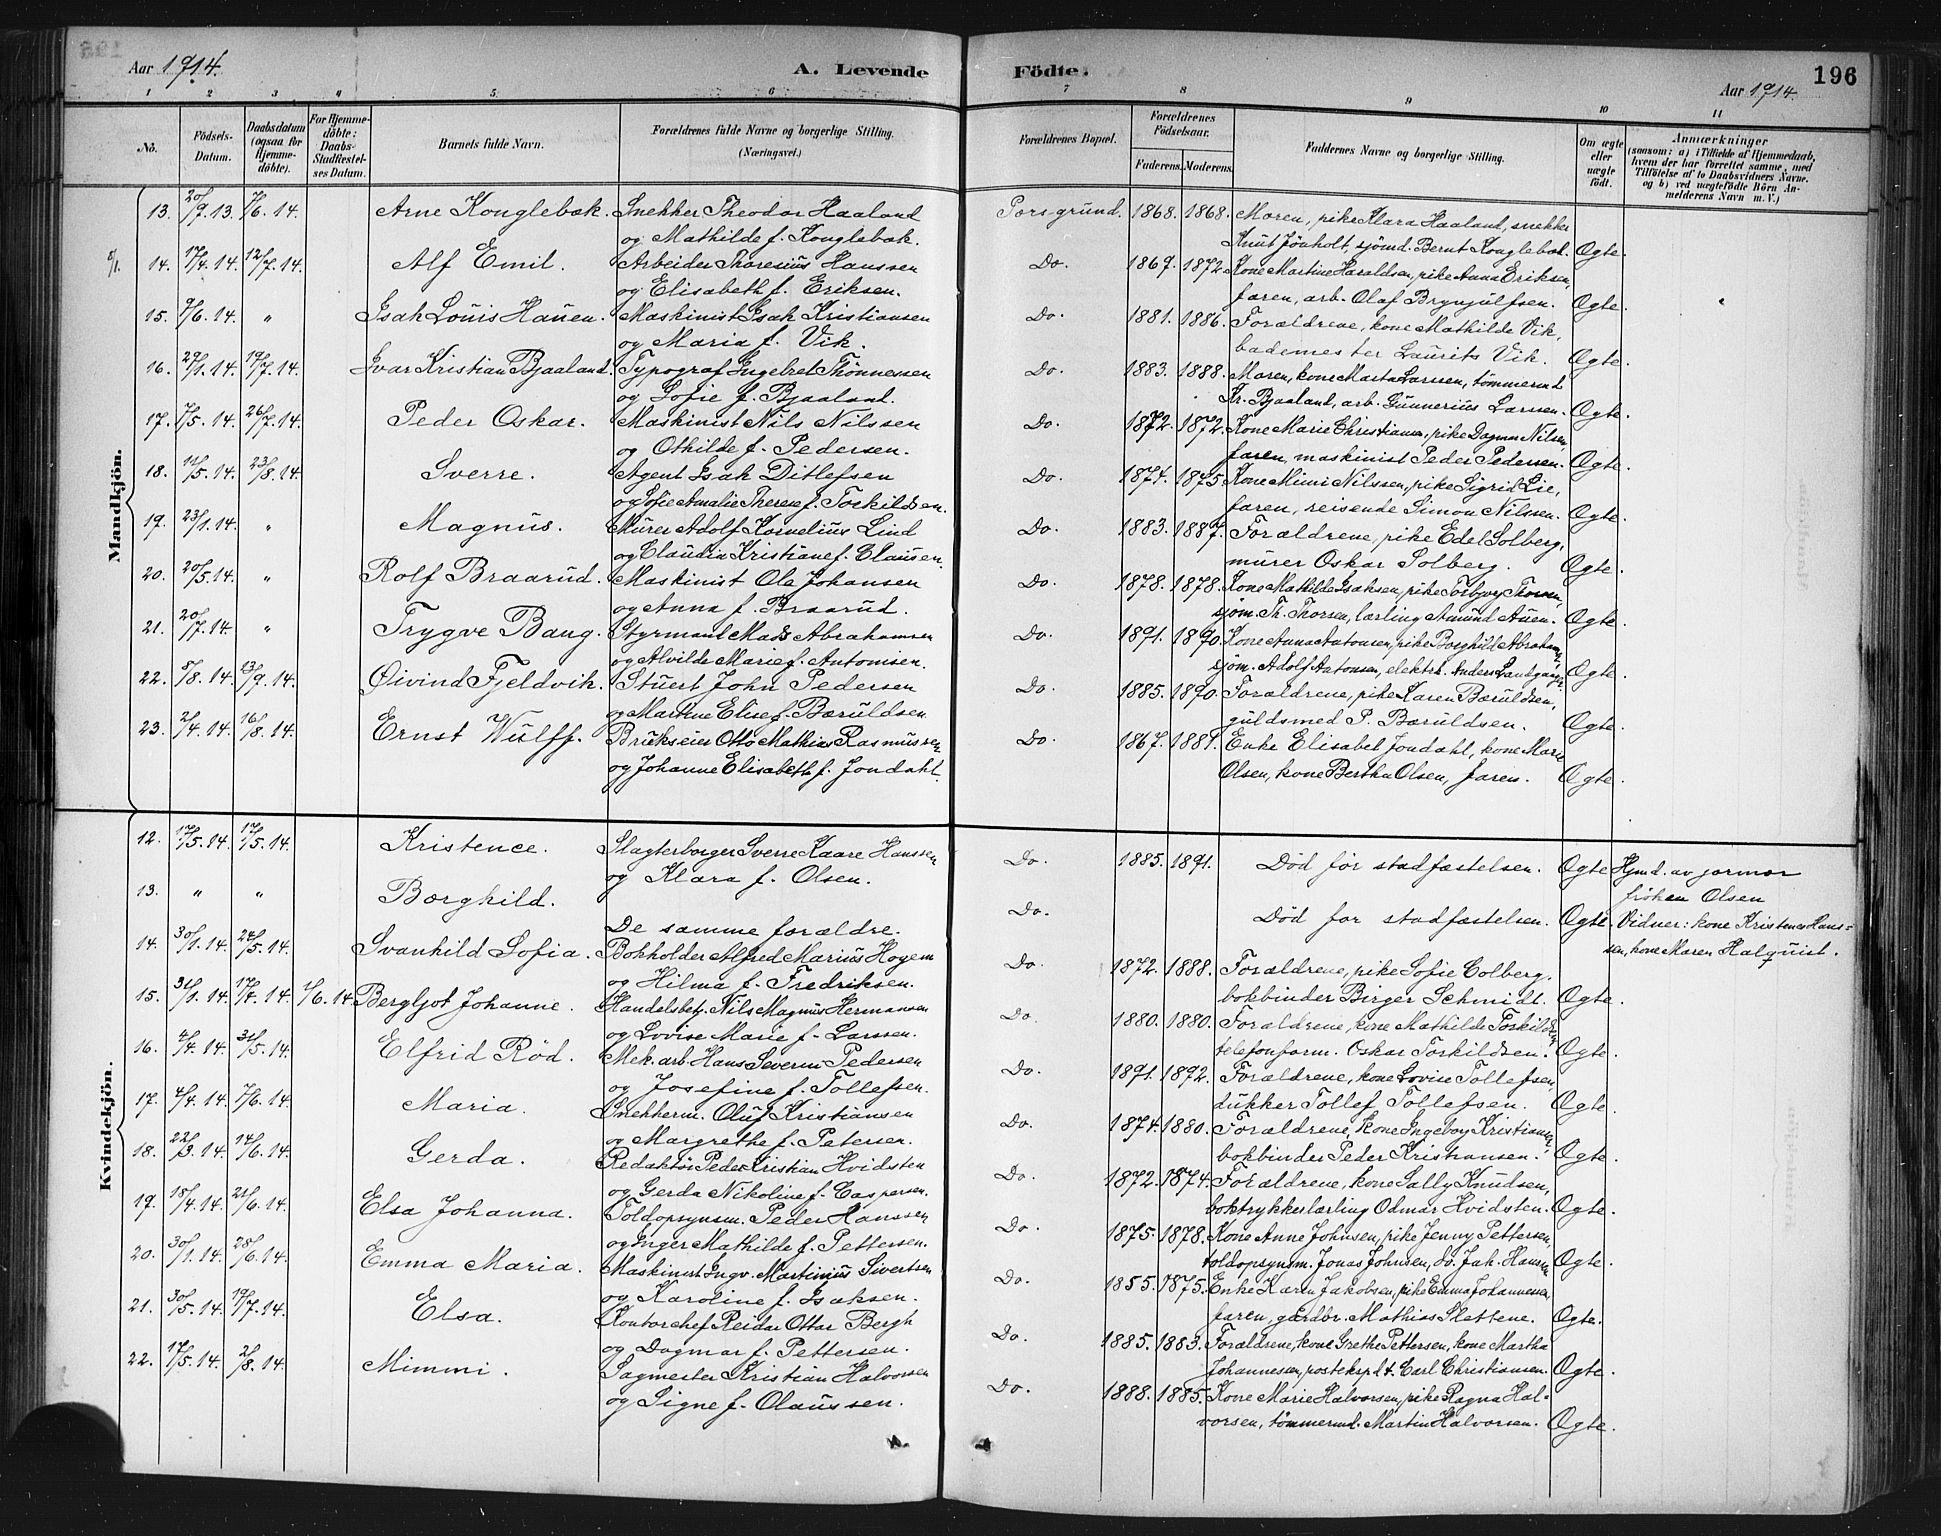 Aar 1914.
A. Levende Födte.
Aar 1914.
196
1 2 3 4 5 6 7 8 9 10 11
No.
Födsels-
Datum.
Daabsdatum
(ogsaa for
Hjemme-
döbte).
For Hjemme-
döbte:
Daabs-
Stadfæstel-
ses Datum.
Barnets fulde Navn.
Forældrenes fulde Navne og borgerlige Stilling.
(Næringsvei.)
Forældrenes Bopæl.
Forældrenes
Födselsaar.
Faderens. Moderens.
Faddernes Navne og borgerlige Stilling.
Om ægte
eller
uægte
födt.
Anmærkninger
(saasom: a) i Tilfælde af Hjemmedaab,
hvem der har forrettet samme, med
Tilföielse af to Daabsvidners Navne.
og b) ved uægtefödte Börn An-
melderens Navn m. V.)
Mandkjön.
13. 20/9.13. 7/6.14. Arne Konglebæk. Snekker Theodor Haaland Porsgrund. 1868. 1868. Moren, pike Klara Haaland, snekker
og Mathilde f. Konglebæk. Knut Jönholt, sjömd. Bernt Konglebæk. Ægte.
14. 17/4.14. 12/7.14. Alf Emil. Arbeider Thoresius Hanssen Do. 1867. 1872. Kone Martine Haraldsen, pike Anna Eriksen,
og Elisabeth f. Eriksen. faren, arb. Olaf Brynjulfsen. Ægte.
15. 9/6.14. " Isak Louis Hauen. Maskinist Isak Kristiansen Do. 1881. 1886. Forældrene, kone Mathilde Vik,
og Maria f. Vik. bademester Laurits Vik. Ægte.
16. 27/1.14. 19/7.14. Ivar Kristian Bjaaland. Typograf Ingebret Thönnessen Do. 1883. 1888. Moren, kone Marta Larssen, tömmermd
og Sofie f. Bjaaland. Kr. Bjaaland, arb. Gunnerius Larssen. Ægte.
17. 7/5.14. 26/7.14. Peder Oskar. Maskinist Nils Nilssen Do. 1872. 1872. Kone Marie Christiansen, pike Dagmar Nilsen,
og Othilde f. Pedersen. faren, maskinist Peder Pedersen. Ægte.
18. 11/5.14. 23/8.14. Sverre. Agent Isak Ditlefsen Do. 1874. 1875. Kone Mimi Nilssen, pike Sigrid Lie,
og Sofie Amalie Therese f. Torkildsen. faren, reisende Simon Nilssen. Ægte.
19. 23/1.14. " Magnus. Murer Adolf Kornelius Lind Do. 1883. 1887. Forældrene, pike Edel Solberg,
og Claudia Kristiane f. Clausen. murer Oskar Solberg. Ægte.
20. 20/5.14. " Rolf Braarud. Maskinist Ole Johansen Do. 1878. 1878. Kone Mathilde Isaksen, pike Torbjør Thorsen,
og Anna f. Braarud. sjöm. Th. Thorsen, lærling Amund Auen. Ægte.
21. 20/7.14. " Trygve Bang. Styrmant Mads Abrahamsen Do. 1891. 1890. Kone Anna Antonsen, pike Borghild Abrahams.,
og Alvilde Marie f. Antonisen. sjöm. Adolf Antonsen, elektrk. Anders Landgangs. Ægte.
22. 8/8.14. 13/9.14. Øivind Fjeldvik. Stuert John Pedersen Do. 1885. 1890. Forældrene, pike Karen Bæruldsen,
og Martine Elise f. Bæruldsen. guldsmed P. Bæruldsen. Ægte.
23. 2/4.14. 16/8.14. Ernst Wulff. Bruekseier Otto Mathias Rasmussen Do. 1867. 1881. Enke Elisabet Jondahl, kone Marie
og Johanne Elisabeth f. Jondahl. Olsen, kone Bertha Olsen, faren. Ægte.
Kvindekjön.
12. 17/5.14. 17/5.14. Kristence. Slagterborger Sverre Kaare Hanssen Do. 1885. 1891. Död för stadfæstelsen. Ægte. Hjmd. av jormor
og Klara f. Olsen. fröken Olsen
13. " " Borghild. De samme forældre. Do. Död för stadfæstelsen. Ægte. Vidner: kone Kristence Hans-
sen, kone Maren Halqvist.
14. 30/1.14. 24/5.14. Svanhild Sofia. Bokholder Alfred Marius Hogem Do. 1872. 1888. Forældrene, pike Sofie Colberg.
og Hilma f. Fredriksen. bokbinder Birger Schmidt. Ægte.
15. 31/1.14. 17/4.14. 1/6.14. Bergljot Johanne. Handelsbetj. Nils Magnus Hermansen Do. 1880. 1880. Forældrene, kone Mathilde Torkildsen,
og Lovise Marie f. Larssen. telefonform. Oskar Torkildsen. Ægte.
16. 4/4.14. 31/5.14. Elfrid Röd. Mek. arb. Hans Severin Pedersen Do. 1891. 1892. Forældrene, kone Lovise Tollefsen,
og Josefine f. Tollefsen. dukker Tollef Tollefsen. Ægte.
17. 4/4.14. 7/6.14. Maria. Snekkerm. Oluf Kristiansen Do. 1874. 1880. Forældrene, kone Ingeborg Kristiansen,
og Margrethe f. Petersen. bokbinder Peder Kristiansen. Ægte.
18. 22/3.14. 14/6.14. Gerda. Redaktör Peder Kristian Hvidsten Do. 1872. 1874. Forældrene, kone Sally Knudsen,
og Gerda Nikoline f. Caspersen. boktrykkerlærling Odmar Hvidsten. Ægte.
19. 18/4.14. 21/6.14. Elsa Johanna. Toldopsynsm. Peder Hanssen Do. 1875. 1878. Kone Anne Johnsen, pike Jenny Pettersen,
og Inger Mathilde f. Pettersen. toldopsynsm. Jonas Johnsen, do. Jak. Hansen. Ægte.
20. 30/1.14. 28/6.14. Emma Maria. Maskinist Ingv. Martinius Sivertsen Do. 1855. 1875. Enke Karen Jakobsen, pike Emma Johannessen,
og Karoline f. Isaksen. faren, gårdbr. Mathias Slettene. Ægte.
21. 30/5.14. 19/7.14. Elsa. Kontorchef Reidar Ottar Bergh Do. 1885. 1883. Forældrene, kone Grethe Pettersen, kone Martha
og Dagmar f. Pettersen. Johannesen, postekspdt. Carl Christiansen. Ægte.
22. 17/5.14. 2/8.14. Mimmi. Sagmester Kristian Halvorsen Do. 1888. 1885. Kone Marie Halvorsen, pike Ragna Hal-
og Signe f. Olaussen. vorsen, tömmermd. Martin Halvorsen. Ægte.